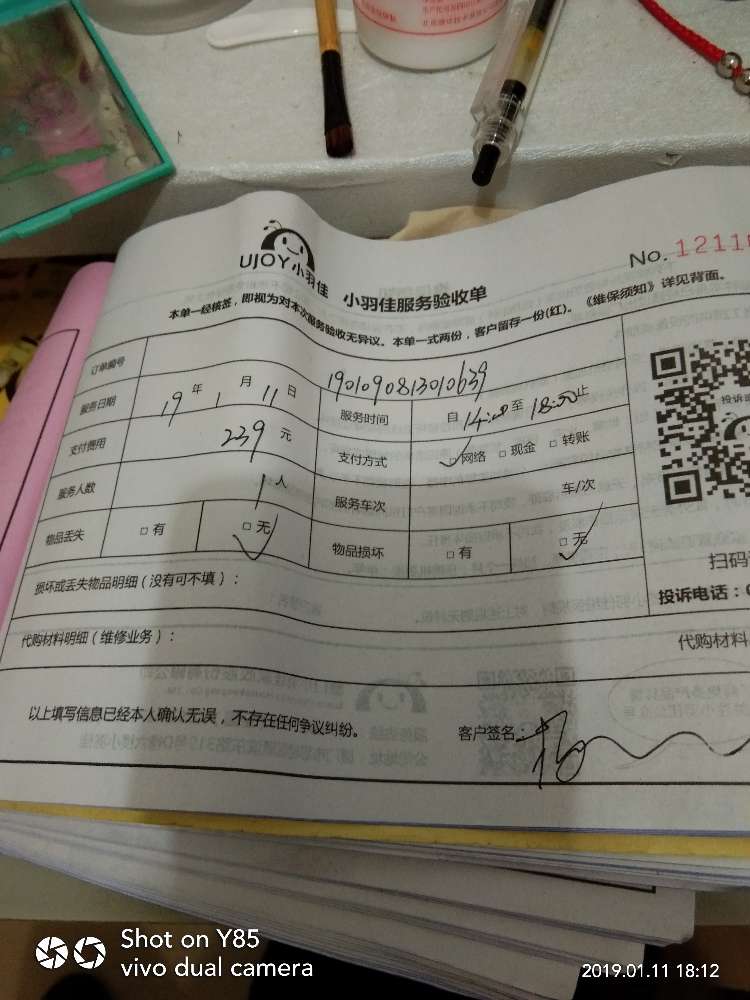 No. 1211
UJOY小羽佳 小羽佳服务验收单
本单一经核签，即视为对本次服务验收无异议。本单一式两份，客户留存一份(红)。《维保须知》详见背面。
订单编号 1901090813010639
服务日期 19 年 1 月 11 日 服务时间 自 14:00 至 18:00 止
支付费用 239 元 支付方式 ✓网络 □现金 □转账
服务人数 1 人 服务车次 车/次
物品丢失 □有 □无 ✓ 物品损坏 □有 □无 ✓
损坏或丢失物品明细（没有可不填）：
扫码
投诉电话：
代购材料明细（维修业务）：
代购材料
以上填写信息已经本人确认无误，不存在任何争议纠纷。 客户签名：
Shot on Y85
vivo dual camera
2019.01.11 18:12